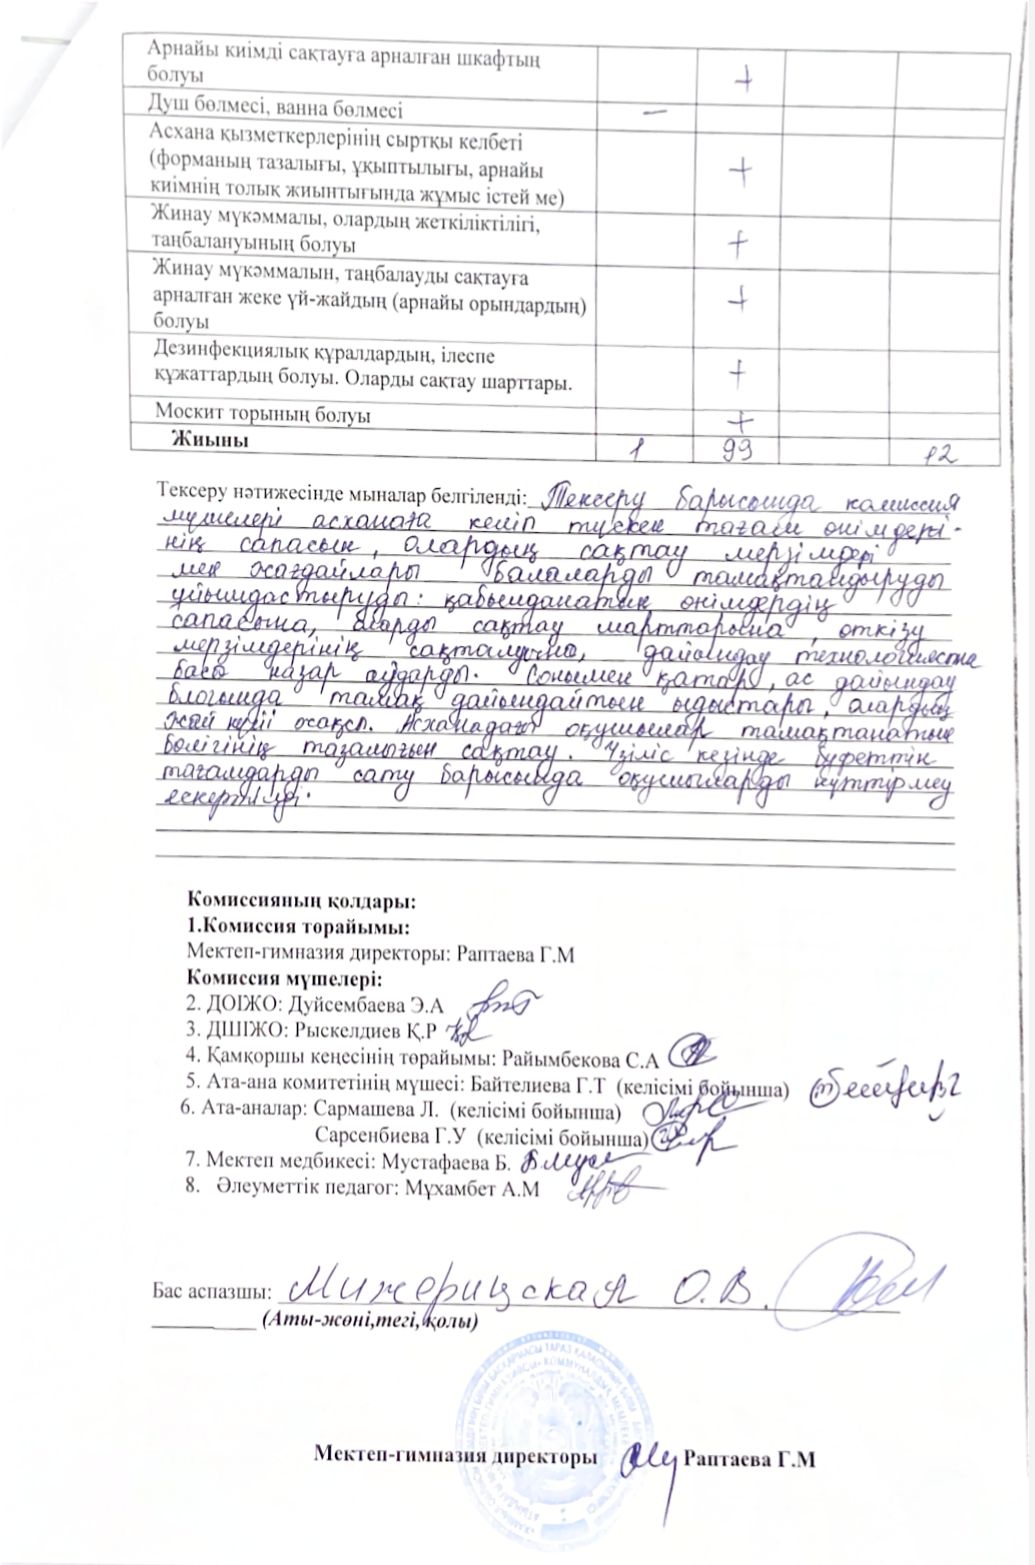 Арнайы киімді сақтауға арналған шкафтың
болуы +
Душ бөлмесі, ванна бөлмесі –
Асхана қызметкерлерінің сыртқы келбеті
(форманың тазалығы, ұқыптылығы, арнайы
киімнің толық жиынтығында жұмыс істей ме) +
Жинау мүкәммалы, олардың жеткіліктілігі,
таңбалануының болуы +
Жинау мүкәммалын, таңбалауды сақтауға
арналған жеке үй-жайдың (арнайы орындардың)
болуы +
Дезинфекциялық құралдардың, ілеспе
құжаттардың болуы. Оларды сақтау шарттары. +
Москит торының болуы +
Жиыны 1 99 12
Тексеру нәтижесінде мыналар белгіленді: Тексеру барысында комиссия
мүшелері асханаға келіп түскен тағам өнімдері-
нің сапасын, олардың сақтау мерзімдері
мен жағдайлары балаларды тамақтандыруды
ұйымдастыруды: қабылданатын өнімдердің
сапасына, оларды сақтау шарттарына, өткізу
мерзімдерінің сақталуына, дайындау технологиясына
баса назар аударды. Сонымен қатар, ас дайындау
блогында тамақ дайындайтын ыдыстары, олардың
жай күйі жақсы. Асханадағы оқушылар тамақтанатын
бөлігінің тазалығын сақтау. Үзіліс кезінде буфеттін
тағамдарды сату барысында оқушыларды күттірмеу
ескертілді.
Комиссияның қолдары:
1.Комиссия торайымы:
Мектеп-гимназия директоры: Раптаева Г.М
Комиссия мүшелері:
2. ДОІЖО: Дуйсембаева Э.А
3. ДШІЖО: Рыскелдиев Қ.Р
4. Қамқоршы кеңесінің төрайымы: Райымбекова С.А
5. Ата-ана комитетінің мүшесі: Байтелиева Г.Т (келісімі бойынша)
6. Ата-аналар: Сармашева Л. (келісімі бойынша)
Сарсенбиева Г.У (келісімі бойынша)
7. Мектеп медбикесі: Мустафаева Б.
8. Әлеуметтік педагог: Мұхамбет А.М
Бас аспазшы: Мижерицская О.В.
(Аты-жөні,тегі, қолы)
Мектеп-гимназия директоры Раптаева Г.М